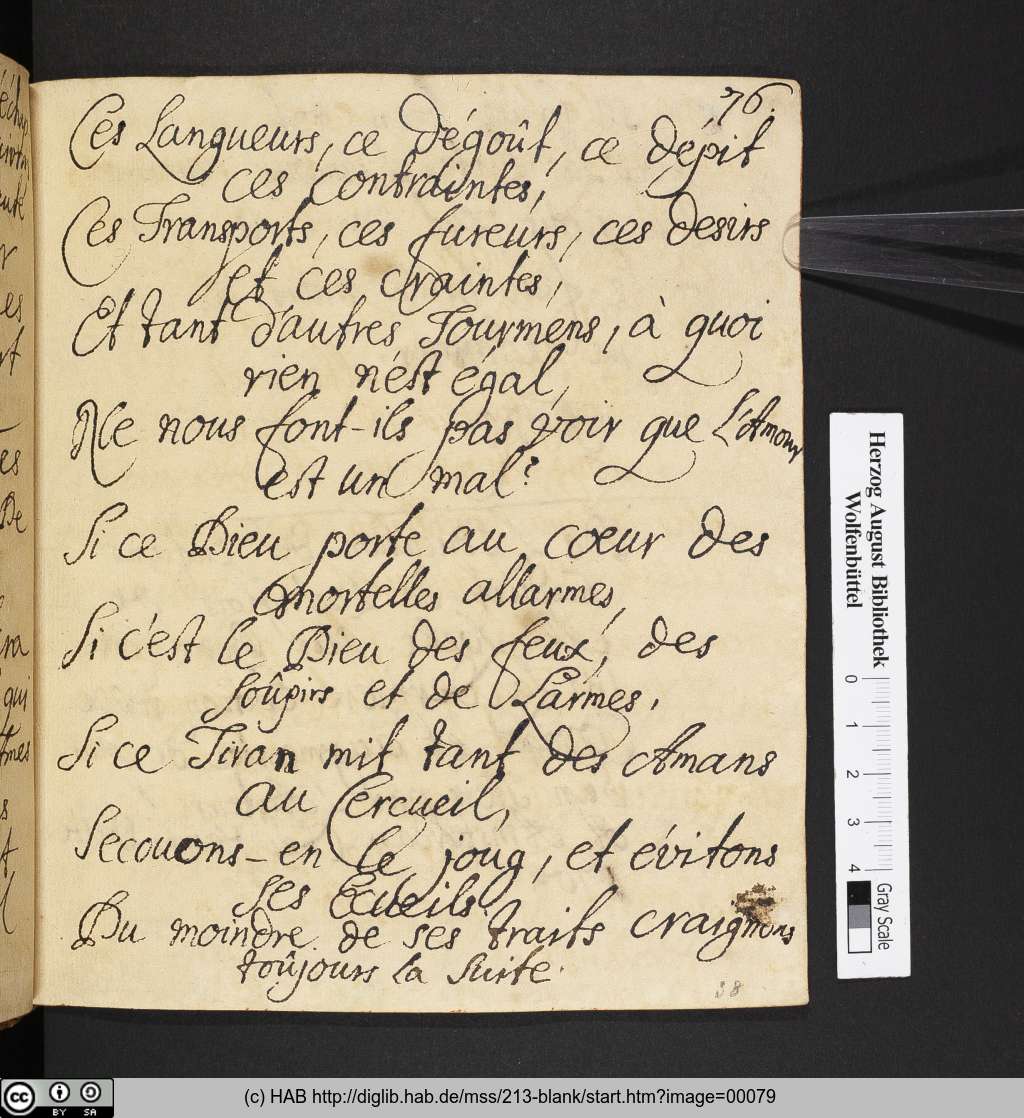 76.
Ces Langueurs, ce Dégoût, ce dépit
ces contraintes,
Ces Transports, ces fureurs, ces desirs
et ces craintes,
Et tant d'autres Tourmens, à quoi
rien n'est égal,
Ne nous font-ils pas voir que L'Amour
est un mal?
Si ce Dieu porte au coeur des
mortelles allarmes,
Si c'est le Dieu des feux, des
soûpirs et de Larmes,
Si ce Tiran mit tant des Amans
au Cercueil,
Secouons-en le joug, et évitons
ses Ecueils.
Du moindre de ses traits craignons
toûjours la suite.
38
Herzog August Bibliothek
Wolfenbüttel
0 1 2 3 4
Gray Scale
cc BY SA
(c) HAB http://diglib.hab.de/mss/213-blank/start.htm?image=00079